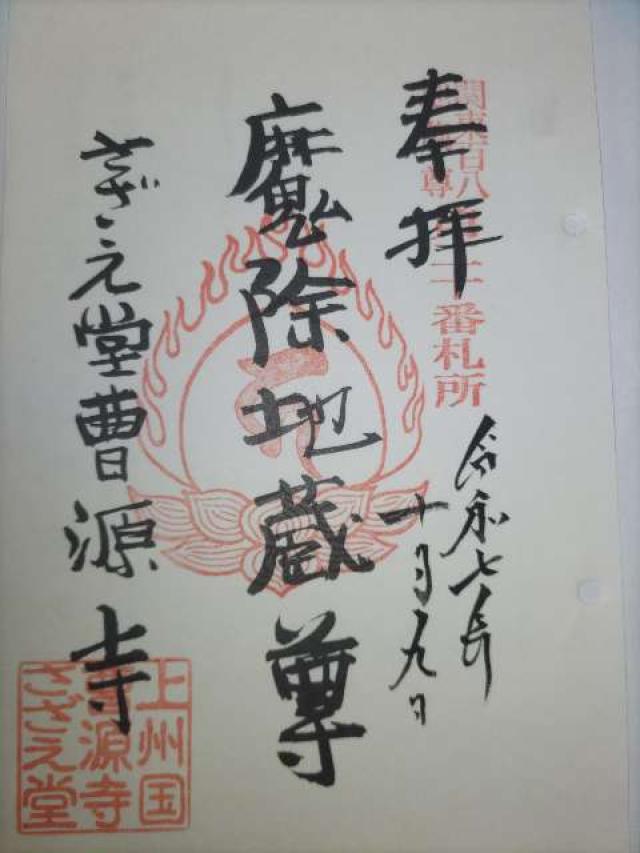 奉拝
関東百八
尊
番札所
令和七年
十月九日
魔除地蔵尊
さざえ堂曹源寺
上州国
曹源寺
さざえ堂